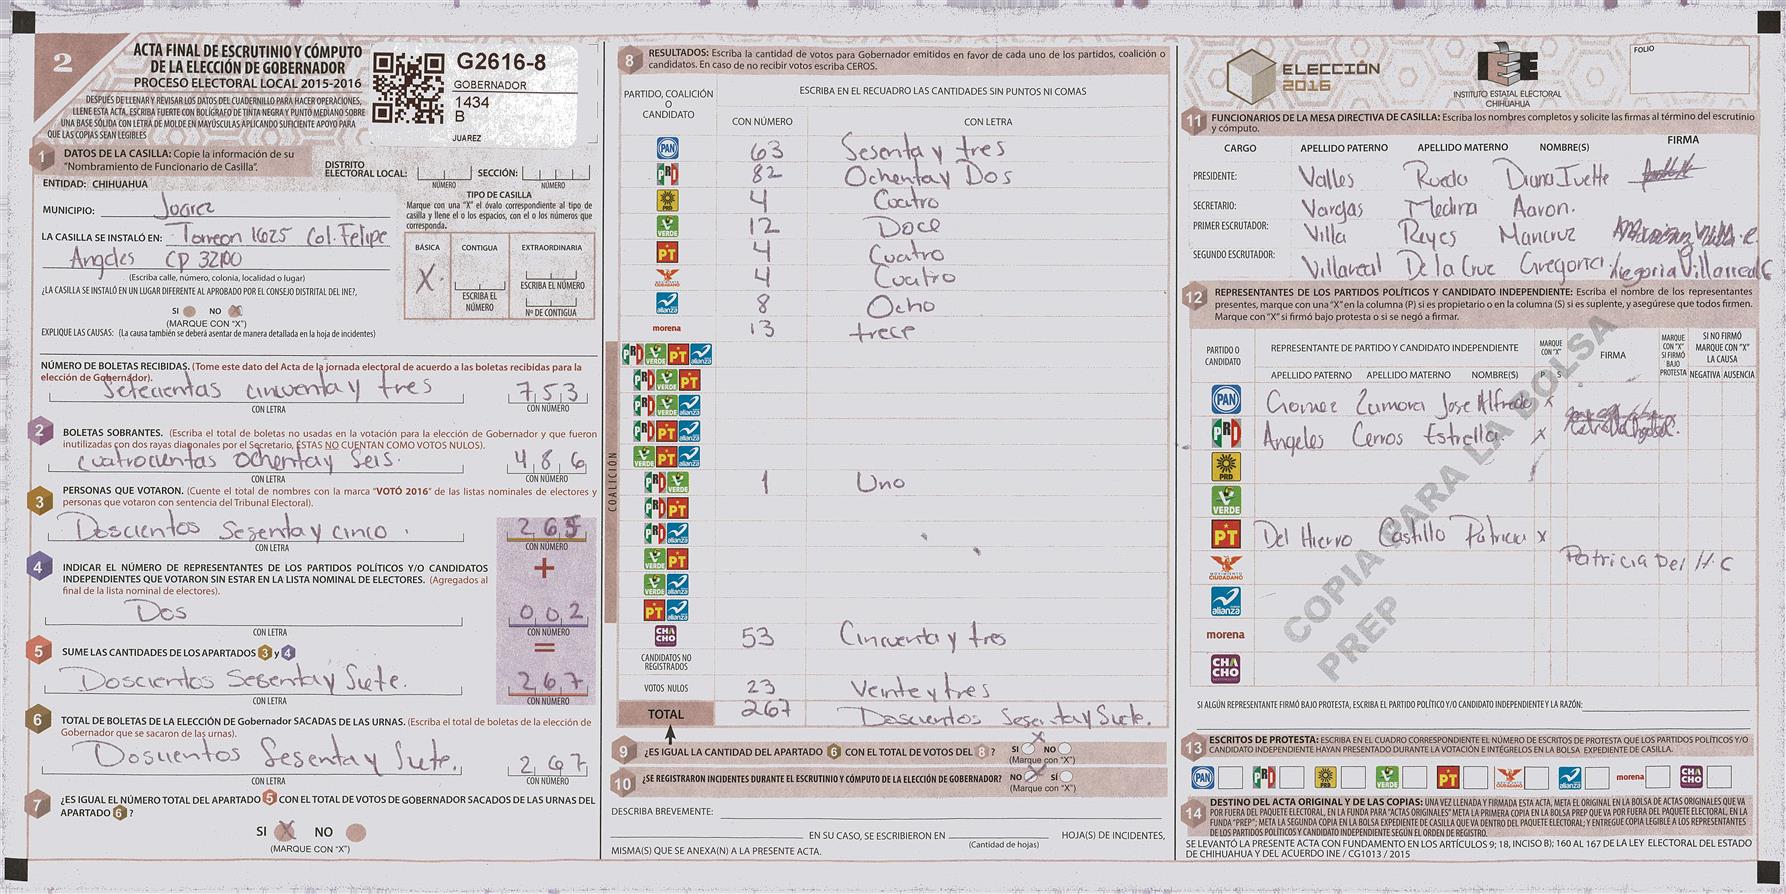 2
ACTA FINAL DE ESCRUTINIO Y CÓMPUTO
DE LA ELECCIÓN DE GOBERNADOR
PROCESO ELECTORAL LOCAL 2015-2016
DESPUÉS DE LLENAR Y REVISAR LOS DATOS DEL CUADERNILLO PARA HACER OPERACIONES,
LLENE ESTA ACTA. ESCRIBA FUERTE CON BOLÍGRAFO DE TINTA NEGRA Y PUNTO MEDIANO SOBRE
UNA BASE SÓLIDA CON LETRA DE MOLDE EN MAYÚSCULAS APLICANDO SUFICIENTE APOYO PARA
QUE LAS COPIAS SEAN LEGIBLES
G2616-8
GOBERNADOR
1434
B
JUAREZ
1 DATOS DE LA CASILLA: Copie la información de su
"Nombramiento de Funcionario de Casilla".
DISTRITO
ELECTORAL LOCAL: SECCIÓN:
NÚMERO NÚMERO
ENTIDAD: CHIHUAHUA
MUNICIPIO: Juarez
LA CASILLA SE INSTALÓ EN: Torreon 1625 Col. Felipe
Angeles CP 32100
(Escriba calle, número, colonia, localidad o lugar)
TIPO DE CASILLA
Marque con una "X" el óvalo correspondiente al tipo de
casilla y llene el o los espacios, con el o los números que
corresponda.
BÁSICA CONTIGUA EXTRAORDINARIA
X
ESCRIBA EL NÚMERO
ESCRIBA EL NÚMERO
Nº DE CONTIGUA
¿LA CASILLA SE INSTALÓ EN UN LUGAR DIFERENTE AL APROBADO POR EL CONSEJO DISTRITAL DEL INE?,
SI NO X
(MARQUE CON "X")
EXPLIQUE LAS CAUSAS: (La causa también se deberá asentar de manera detallada en la hoja de incidentes)
NÚMERO DE BOLETAS RECIBIDAS. (Tome este dato del Acta de la jornada electoral de acuerdo a las boletas recibidas para la
elección de Gobernador).
Setecientas cincuenta y tres 753
CON LETRA CON NÚMERO
2 BOLETAS SOBRANTES. (Escriba el total de boletas no usadas en la votación para la elección de Gobernador y que fueron
inutilizadas con dos rayas diagonales por el Secretario, ÉSTAS NO CUENTAN COMO VOTOS NULOS).
Cuatrocientas Ochenta y Seis. 486
CON LETRA CON NÚMERO
3 PERSONAS QUE VOTARON. (Cuente el total de nombres con la marca "VOTÓ 2016" de las listas nominales de electores y
personas que votaron con sentencia del Tribunal Electoral).
Doscientos Sesenta y cinco . 265
CON LETRA CON NÚMERO
+
4 INDICAR EL NÚMERO DE REPRESENTANTES DE LOS PARTIDOS POLÍTICOS Y/O CANDIDATOS
INDEPENDIENTES QUE VOTARON SIN ESTAR EN LA LISTA NOMINAL DE ELECTORES. (Agregados al
final de la lista nominal de electores).
Dos 002
CON LETRA CON NÚMERO
=
5 SUME LAS CANTIDADES DE LOS APARTADOS 3 y 4
Doscientos Sesenta y Siete. 267
CON LETRA CON NÚMERO
6 TOTAL DE BOLETAS DE LA ELECCIÓN DE Gobernador SACADAS DE LAS URNAS. (Escriba el total de boletas de la elección de
Gobernador que se sacaron de las urnas).
Doscientos Sesenta y Siete. 267
CON LETRA CON NÚMERO
7 ¿ES IGUAL EL NÚMERO TOTAL DEL APARTADO 5 CON EL TOTAL DE VOTOS DE GOBERNADOR SACADOS DE LAS URNAS DEL
APARTADO 6?
SI X NO
(MARQUE CON "X")
8 RESULTADOS: Escriba la cantidad de votos para Gobernador emitidos en favor de cada uno de los partidos, coalición o
candidatos. En caso de no recibir votos escriba CEROS.
PARTIDO, COALICIÓN
O
CANDIDATO
ESCRIBA EN EL RECUADRO LAS CANTIDADES SIN PUNTOS NI COMAS
CON NÚMERO CON LETRA
PAN 63 Sesenta y tres
PRI 82 Ochenta y Dos
PRD 4 Cuatro
VERDE 12 Doce
PT 4 Cuatro
4 Cuatro
alianza 8 Ocho
morena 13 trece
COALICIÓN
PRI VERDE PT alianza
PRI VERDE PT
PRI VERDE alianza
PRI PT alianza
VERDE PT alianza
PRI VERDE 1 Uno
PRI PT
PRI alianza
VERDE PT
VERDE alianza
PT alianza
CHACHO 53 Cincuenta y tres
CANDIDATOS NO
REGISTRADOS
VOTOS NULOS 23 Veinte y tres
TOTAL 267 Doscientos Sesenta y Siete.
9 ¿ES IGUAL LA CANTIDAD DEL APARTADO 6 CON EL TOTAL DE VOTOS DEL 8? SI X NO
(Marque con "X")
10 ¿SE REGISTRARON INCIDENTES DURANTE EL ESCRUTINIO Y CÓMPUTO DE LA ELECCIÓN DE GOBERNADOR? NO X SÍ
(Marque con "X")
DESCRIBA BREVEMENTE:
EN SU CASO, SE ESCRIBIERON EN HOJA(S) DE INCIDENTES,
(Cantidad de hojas)
MISMA(S) QUE SE ANEXA(N) A LA PRESENTE ACTA.
ELECCIÓN
2016
IEE
INSTITUTO ESTATAL ELECTORAL
CHIHUAHUA
FOLIO
11 FUNCIONARIOS DE LA MESA DIRECTIVA DE CASILLA: Escriba los nombres completos y solicite las firmas al término del escrutinio
y cómputo.
CARGO APELLIDO PATERNO APELLIDO MATERNO NOMBRE(S) FIRMA
PRESIDENTE: Valles Rueda Diana Ivette
SECRETARIO: Vargas Medina Aaron.
PRIMER ESCRUTADOR: Villa Reyes Maricruz
SEGUNDO ESCRUTADOR: Villareal De la Cruz Gregoria Gregoria Villarreal C
12 REPRESENTANTES DE LOS PARTIDOS POLÍTICOS Y CANDIDATO INDEPENDIENTE: Escriba el nombre de los representantes
presentes, marque con una "X" en la columna (P) si es propietario o en la columna (S) si es suplente, y asegúrese que todos firmen.
Marque con "X" si firmó bajo protesta o si se negó a firmar.
PARTIDO O
CANDIDATO
REPRESENTANTE DE PARTIDO Y CANDIDATO INDEPENDIENTE
APELLIDO PATERNO APELLIDO MATERNO NOMBRE(S)
MARQUE CON "X"
P S
FIRMA
MARQUE CON "X" SI FIRMÓ BAJO PROTESTA
SI NO FIRMÓ MARQUE CON "X" LA CAUSA
NEGATIVA AUSENCIA
PAN Gomez Zamora Jose Alfredo X
PRI Angeles Cerros Estrella X
PRD
VERDE
PT Del Hierro Castillo Patricia X Patricia Del H. C
MOVIMIENTO CIUDADANO
alianza
morena
CHACHO
COPIA PARA LA BOLSA
PREP
SI ALGÚN REPRESENTANTE FIRMÓ BAJO PROTESTA, ESCRIBA EL PARTIDO POLÍTICO Y/O CANDIDATO INDEPENDIENTE Y LA RAZÓN:
13 ESCRITOS DE PROTESTA: ESCRIBA EN EL CUADRO CORRESPONDIENTE EL NÚMERO DE ESCRITOS DE PROTESTA QUE LOS PARTIDOS POLÍTICOS Y/O
CANDIDATO INDEPENDIENTE HAYAN PRESENTADO DURANTE LA VOTACIÓN E INTÉGRELOS EN LA BOLSA EXPEDIENTE DE CASILLA.
PAN PRI PRD VERDE PT alianza morena CHACHO
14 DESTINO DEL ACTA ORIGINAL Y DE LAS COPIAS: UNA VEZ LLENADA Y FIRMADA ESTA ACTA, META EL ORIGINAL EN LA BOLSA DE ACTAS ORIGINALES QUE VA
POR FUERA DEL PAQUETE ELECTORAL, EN LA FUNDA PARA "ACTAS ORIGINALES" META LA PRIMERA COPIA EN LA BOLSA PREP QUE VA POR FUERA DEL PAQUETE ELECTORAL, EN LA
FUNDA "PREP"; META LA SEGUNDA COPIA EN LA BOLSA EXPEDIENTE DE CASILLA QUE VA DENTRO DEL PAQUETE ELECTORAL; Y ENTREGUE COPIA LEGIBLE A LOS REPRESENTANTES
DE LOS PARTIDOS POLÍTICOS Y CANDIDATO INDEPENDIENTE SEGÚN EL ORDEN DE REGISTRO.
SE LEVANTÓ LA PRESENTE ACTA CON FUNDAMENTO EN LOS ARTÍCULOS 9; 18, INCISO B); 160 AL 167 DE LA LEY ELECTORAL DEL ESTADO
DE CHIHUAHUA Y DEL ACUERDO INE / CG1013 / 2015